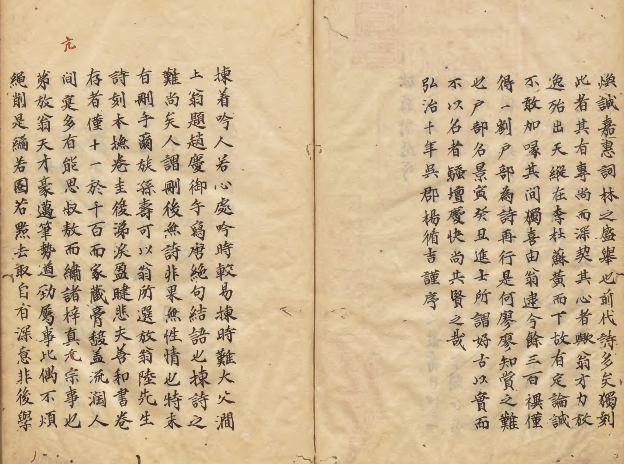 煥誠嘉惠詞林之盛舉也前代詩多矣獨刻
此者其有專尚而深契其心者歟翁才力放
逸殆出天縱在李杜蘇黃而下故有定論誠
不敢加喙其間獨喜由翁逮今餘三百禩僅
得一劉戶部為詩再行是何廖廖知賞之難
也戶部名景寅癸丑進士所謂好古以實而
不以名者騷壇慶快尚共賢之哉
弘治十年吳郡楊循吉謹序
揀着吟人若心處吟時較易揀時難大父澗
上翁題趙慶御寫唐絕句結語也揀詩之
難尚矣人謂刪後無詩非果無性情也特未
有刪手爾族孫壽可以翁所選放翁陸先生
詩刻本撫卷圭復涕淚盈睫悲夫善和書卷
存者僅十一於千百而家藏膏馥盖流潤人
亢
間寔多有能思叔敖而繡諸梓真亢宗事也
第放翁天才豪邁筆勢遒勁屬事比偶不煩
繩削是編若圈若點去取自有深意非後學